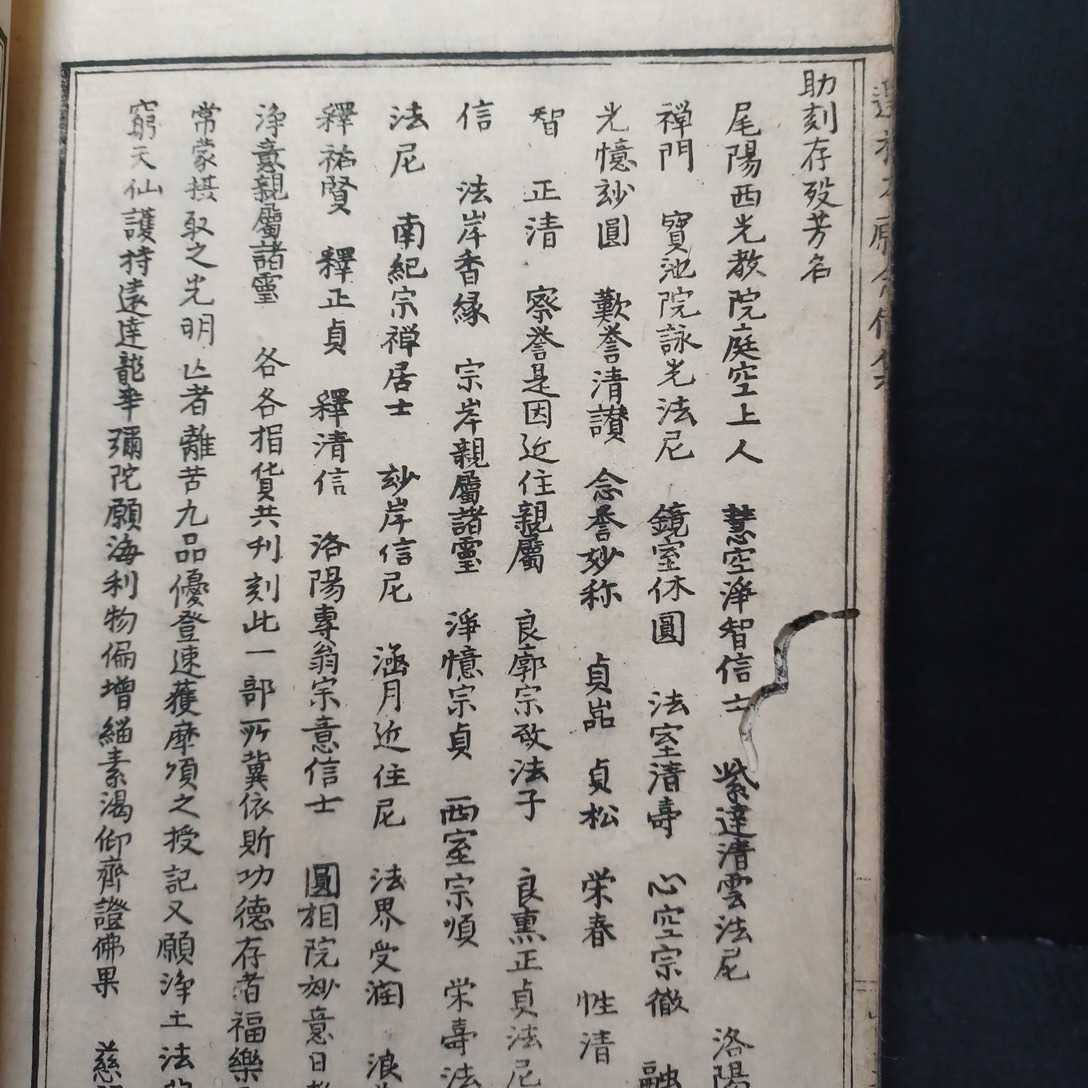 助刻存歿芳名
尾陽西光教院庭空上人 慧空淨智信士 紫達清雲法尼 洛陽
禅門 寶池院詠光法尼 鏡室休圓 法室清壽 心空宗徹 融
光憶玅圓 歎誉清讃 念誉妙称 貞品 貞松 栄春 性清
智 正清 察誉是因近住親屬 良廓宗致法子 良熏正貞法尼
信 法岸香縁 宗岸親屬諸靈 淨憶宗貞 西室宗順 栄壽法
法尼 南紀宗禅居士 玅岸信尼 涵月近住尼 法界受潤 浪
釋祐賢 釋正貞 釋清信 洛陽專翁宗意信士 圓相院妙意日
浄意親屬諸靈 各各捐貨共刋刻此一部所冀依斯功德存者福樂
常蒙摂取之光明亡者離苦九品優登速獲摩頂之授記又願浄土法
窮天仙護持遠達龍華彌陀願海利物偏增緇素渇仰齊證佛果 慈